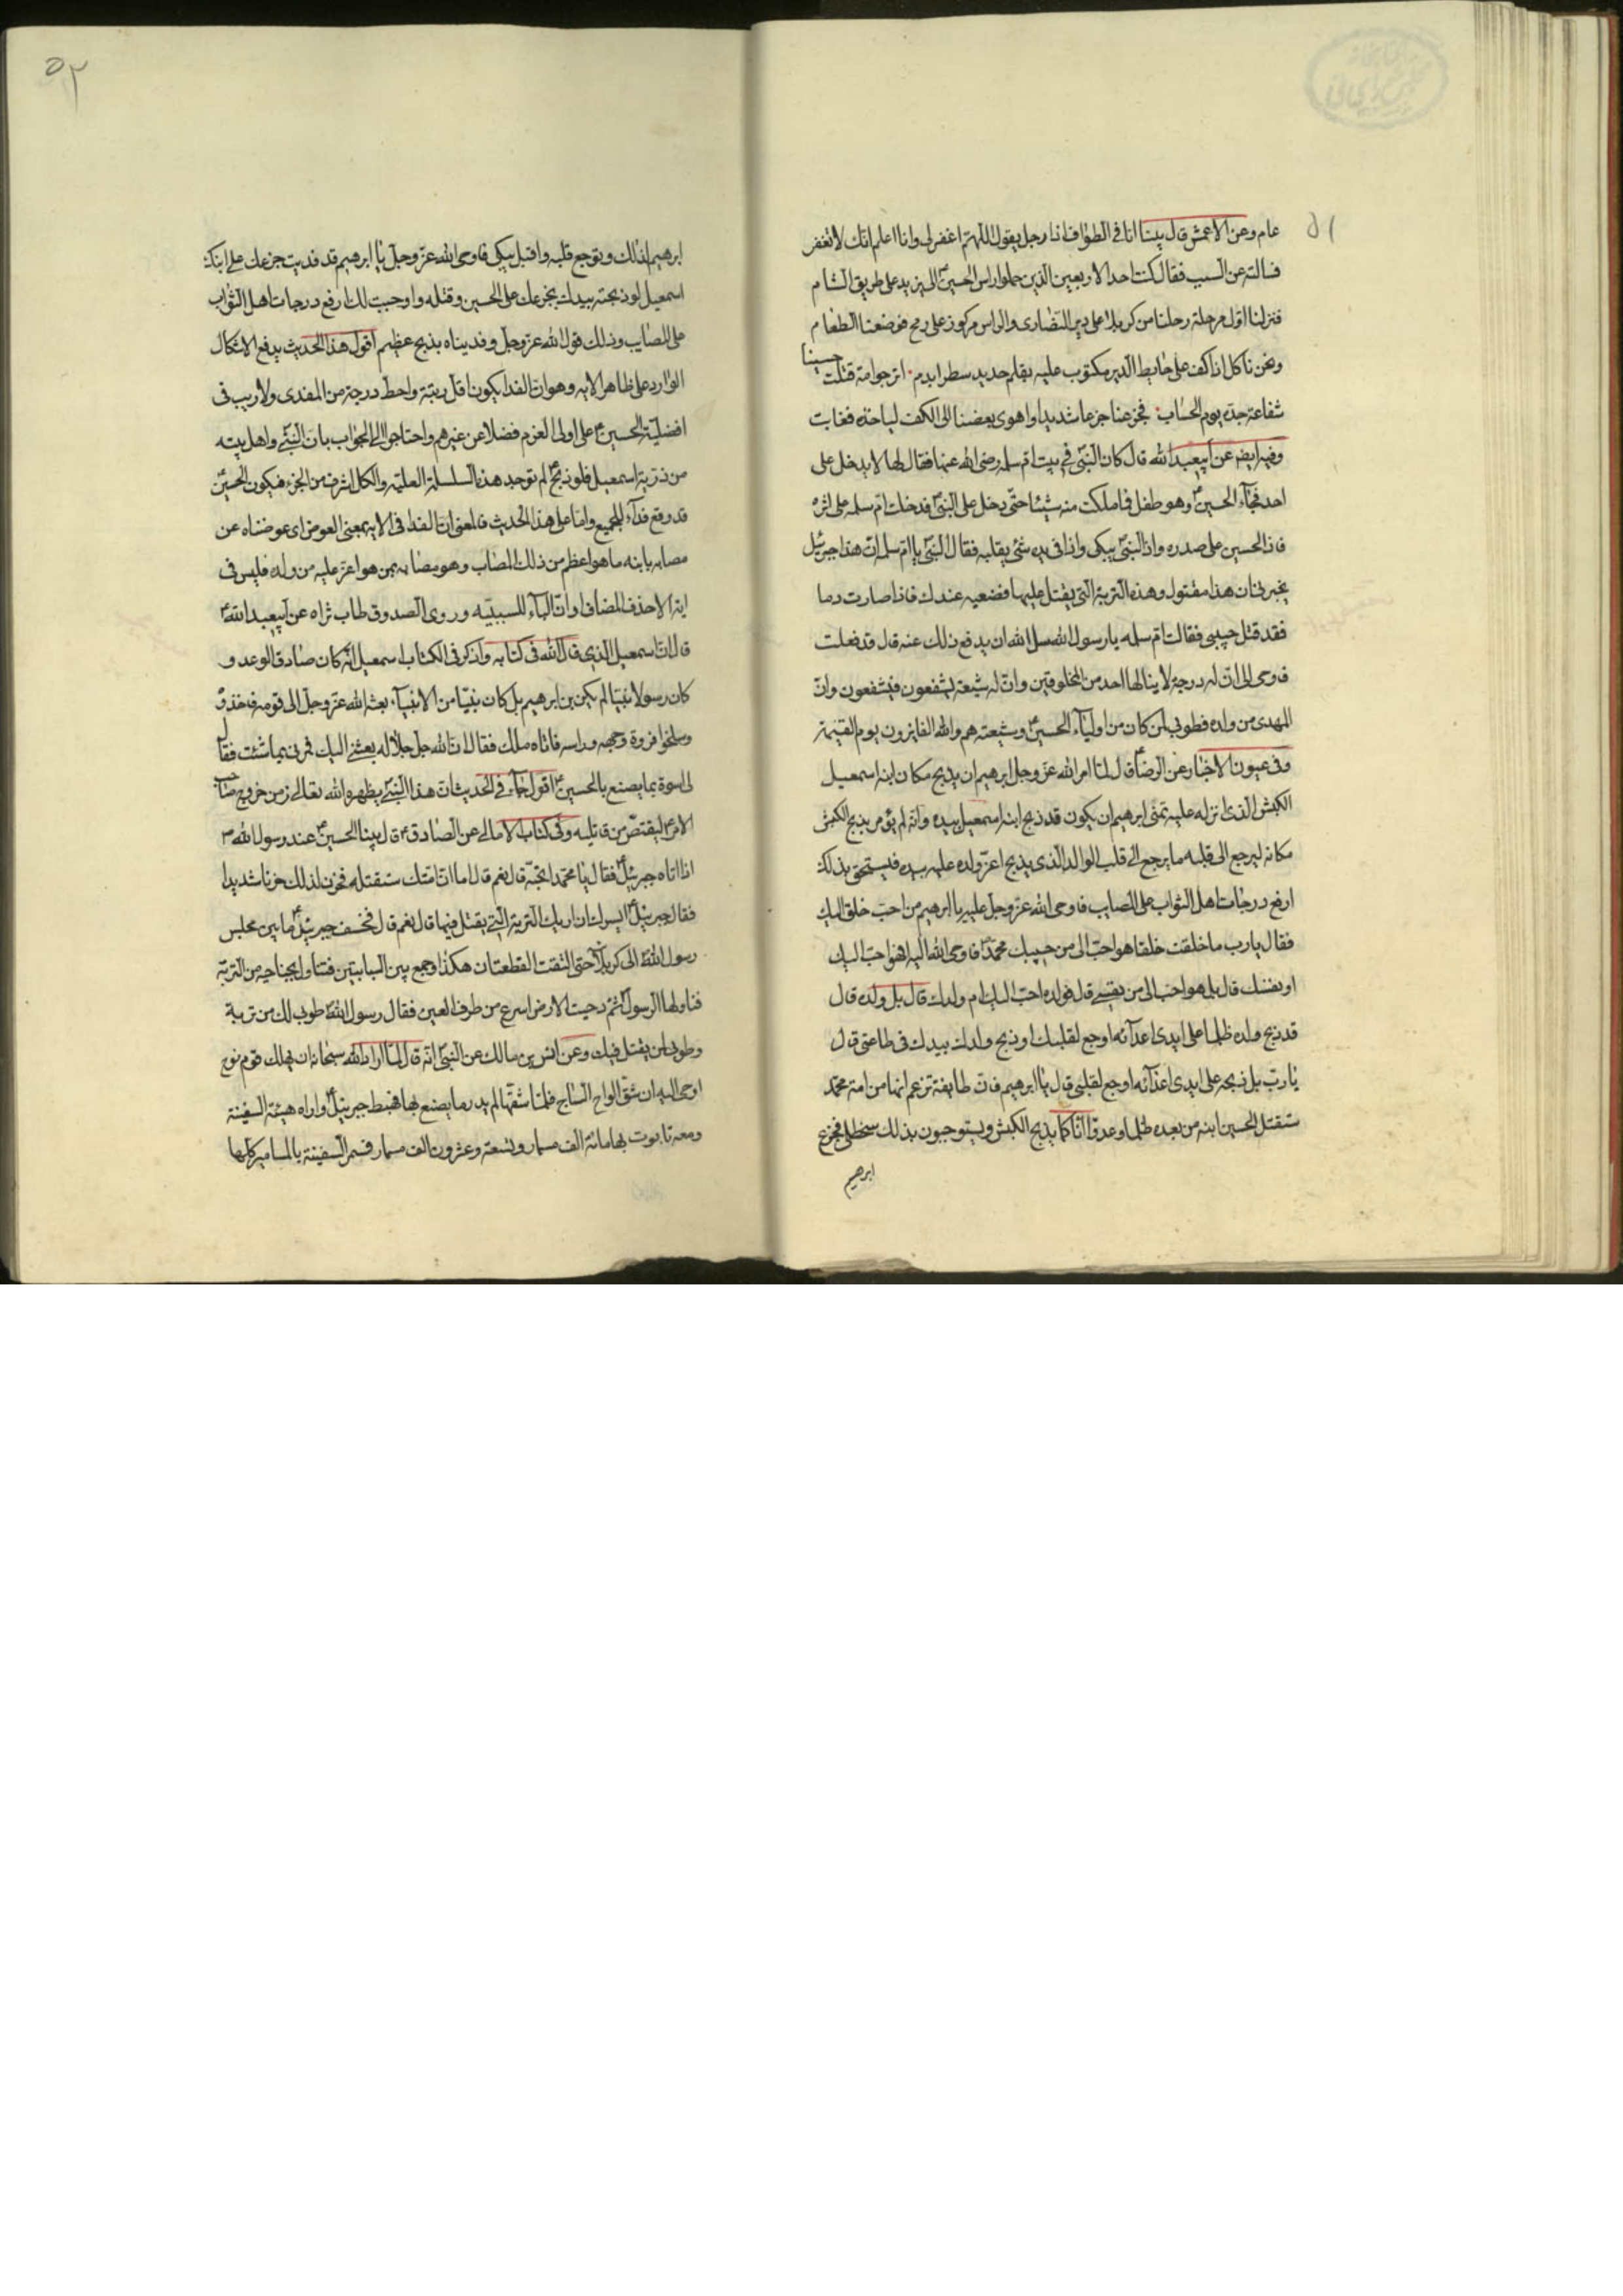 ٥١
عام وعن الاعمش قال بينا انا فی الطواف اذا رجل يقول اللهم اغفر لی وانا اعلم انك لا تغفر
فسالته عن السبب فقال كنت احد الاربعين الذين حملوا راس الحسين ع الی يزيد علی طريق الشام
فنزلنا اول مرحلة رحلنا من كربلا علی دير النصاری والراس مركوز علی رمح فوضعنا الطعام
ونحن ناكل اذا كف علی حايط الدير مكتوب عليه بقلم حديد سطرا بدم اترجوا مة قتلت حسينا
شفاعة جده يوم الحساب فجزعنا جزعا شديدا واهوی بعضنا الی الكف لياخذه فغابت
وفيه ايضا عن ابيعبد الله قال كان النبی فی بيت ام سلمه رضی الله عنها فقال لها لا يدخل علی
احد فجاء الحسين ع وهو طفل فما ملكت منه شيئا حتی دخل علی النبی فدخلت ام سلمه علی اثره
فاذا الحسين علی صدره واذا النبی يبكی واذا فی يده شئ يقلبه فقال النبی يا ام سلمه ان هذا جبرئيل
يخبرنی ان هذا مقتول وهذه التربة التی يقتل عليها فضعيه عندك فاذا صارت دما
فقد قتل حبيبی فقالت ام سلمه يا رسول الله سل الله ان يدفع ذلك عنه قال قد فعلت
فاوحی الی ان له درجة لا ينالها احد من المخلوقين وان له شيعة يشفعون فيشفعون وان
المهدی من ولده فطوبی لمن كان من اولياء الحسين ع وشيعته هم والله الفايزون يوم القيمة
وفی عيون الاخبار عن الرضا ع قال لما امر الله عز وجل ابرهيم ان يذبح مكان ابنه اسمعيل
الكبش الذی انزله عليه تمنی ابرهيم ان يكون قد ذبح ابنه اسمعيل بيده وانه لم يؤمر بذبح الكبش
مكانه ليرجع الی قلبه ما يرجع الی قلب الوالد الذی يذبح اعز ولده عليه بيده فيستحق بذلك
ارفع درجات اهل الثواب علی المصايب فاوحی الله عز وجل عليه يا ابرهيم من احب خلقی اليك
فقال يا رب ما خلقت خلقا هو احب الی من حبيبك محمد فاوحی الله اليه افهو احب اليك
او نفسك قال بل هو احب الی من نفسی قال فولده احب اليك ام ولدك قال بل ولده قال
فذبح ولده ظلما علی ايدی اعدائه اوجع لقلبك او ذبح ولدك بيدك فی طاعتی قال
يا رب بل ذبحه علی ايدی اعدائه اوجع لقلبی قال يا ابرهيم فان طايفة تزعم انها من امة محمد
ستقتل الحسين ابنه من بعده ظلما وعدوانا كما يذبح الكبش ويستوجبون بذلك سخطی فجزع
ابرهيم
٥٢
ابرهيم لذلك وتوجع قلبه واقبل يبكی فاوحی الله عز وجل يا ابرهيم قد فديت جزعك علی ابنك
اسمعيل لو ذبحته بيدك بجزعك علی الحسين وقتله واوجبت لك ارفع درجات اهل الثواب
علی المصايب وذلك قول الله عز وجل وفديناه بذبح عظيم اقول هذا الحديث يدفع الاشكال
الوارد علی ظاهر الايه وهو ان الفدا يكون اقل رتبة واحط درجة من المفدی ولا ريب فی
افضلية الحسين ع علی اولی العزم فضلا عن غيرهم واحتاجوا الی الجواب بان النبی واهل بيته
من ذرية اسمعيل فلو ذبح لم توجد هذه السلسلة العلية والكل اشرف من الجزء فيكون الحسين ع
قد وقع فداء للجميع واما علی هذا الحديث فالمعنی ان الفدا فی الايه بمعنی العوض ای عوضناه عن
مصابه بابنه ما هو اعظم من ذلك المصاب وهو مصابه بمن هو اعز عليه من ولده فليس فی
الاحذف المضاف او ان الباء للسببيه وروی الصدوق طاب ثراه عن ابيعبد الله ع
قال ان اسمعيل الذی قال الله فی كتابه واذكر فی الكتاب اسمعيل انه كان صادق الوعد و
كان رسولا نبيا لم يكن بن ابرهيم بل كان نبيا من الانبياء بعثه الله عز وجل الی قومه فاخذوه
وسلخوا فروة وجهه وراسه فاتاه ملك فقال ان الله جل جلاله بعثنی اليك فمرنی بما شئت فقال
لی اسوة بما يصنع بالحسين ع اقول جاء فی الحديث ان هذا النبی يظهره الله تعالی زمن خروج صاحب
الامر ع ليقتص من قاتليه وفی كتاب الامالی عن الصادق ع قال بينا الحسين ع عند رسول الله ص
اذ اتاه جبرئيل ع فقال يا محمد اتحبه قال نعم قال اما ان امتك ستقتله فحزن لذلك حزنا شديدا
فقال جبرئيل ع ايسرك ان اريك التربة التی يقتل فيها قال نعم قال فخسف جبرئيل ع ما بين مجلس
رسول الله الی كربلا حتی التقت القطعتان هكذا وجمع بين السبابتين فتناول بجناحيه من التربة
فناولها الرسول ثم دحيت الارض اسرع من طرف العين فقال رسول الله طوبی لك من تربة
وطوبی لمن يقتل فيك وعن انس بن مالك عن النبی انه قال لما اراد الله سبحانه ان يهلك قوم نوح
اوحی اليه ان شق الواح الساج فلما شقها لم يدر ما يصنع بها فهبط جبرئيل ع واراه هيئة السفينة
ومعه تابوت بها مائة الف مسمار وتسعة وعشرون الف مسمار فسمر السفينة بالمسامير كلها